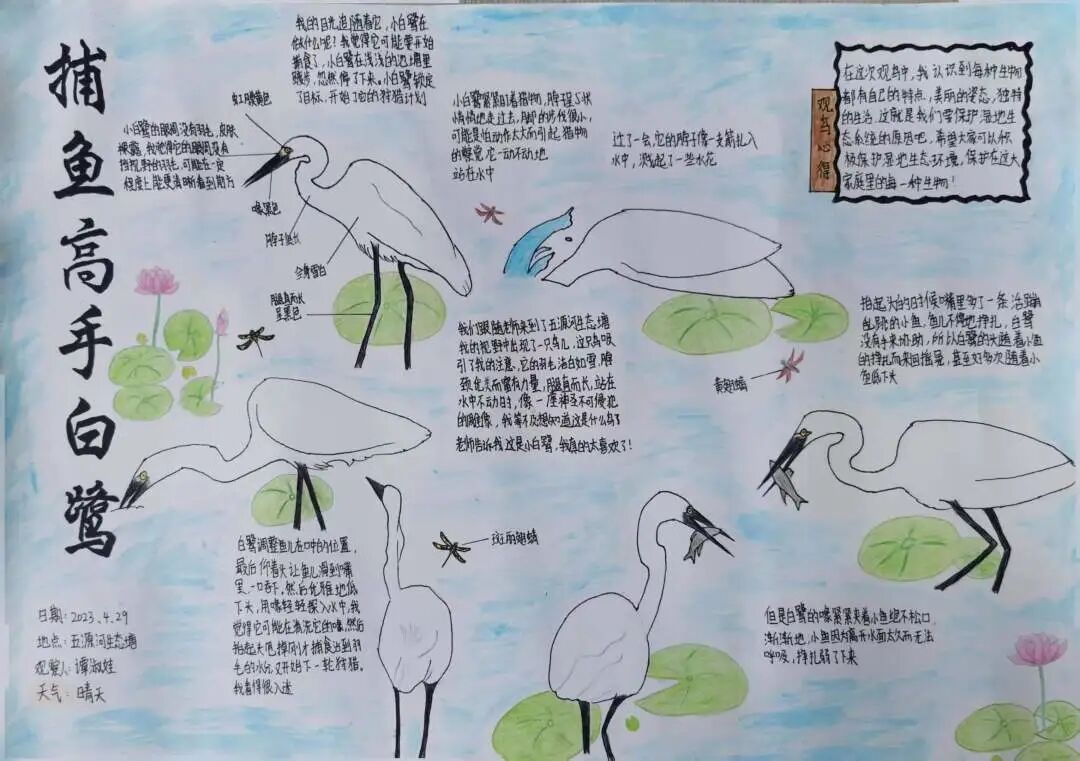 捕鱼高手白鹭
我的目光追随着它，小白鹭在
做什么呢？我觉得它可能要开始
捕食了，小白鹭在浅浅的池塘里
踱步，忽然停了下来。小白鹭锁定
了目标，开始了它的狩猎计划
虹膜黄色
小白鹭的眼周没有羽毛，皮肤
裸露，我觉得它的眼周没有
挡视野的羽毛，可能在一定
程度上能更清晰看到前方
喙黑色
脖子鱼长
全身雪白
腿肩而长
呈黑色
小白鹭紧紧盯着猎物，脖子呈S状
悄悄地走过去，脚的步伐很小，
可能是怕动作太大而引起猎物
的警觉，它一动不动地
站在水中
过了一会，它的脖子像一支箭扎入
水中，溅起了一些水花
观鸟心得
在这次观鸟中，我认识到每种生物
都有自己的特点，美丽的姿态，独特
的生活，这就是我们需保护湿地生
态系统的原因吧，希望大家可以积
极保护湿地生态环境，保护在这大
家庭里的每一种生物！
我们跟随老师来到了五源河生态塘
我的视野中出现了一只鸟儿，这只鸟吸
引了我的注意，它的羽毛洁白如雪，脖
致优美而富有力量，腿肩而长，站在
水中不动时，像一座神圣不可侵犯
的雕像，我等不及想知道这是什么鸟了
老师告诉我这是小白鹭，我真的太喜欢了！
黄翅蜻
抬起头的时候嘴里多了一条活蹦
乱跳的小鱼，鱼儿不停地挣扎，白鹭
没有手来协助，所以白鹭的头随着小鱼
的挣扎而来回摇晃，甚至好多次随着小
鱼低下头
斑丽翅蜻
白鹭调整鱼儿在口中的位置，
最后仰着头让鱼儿滑到嘴
里，一口吞下，然后优雅地低
下头，用喙轻轻探入水中，我
觉得它可能在清洗它的喙，然后
抬起头甩掉刚才捕食沾到羽
毛的水，又开始下一轮狩猎。
我看得很入迷
但是白鹭的喙紧紧夹着小鱼绝不松口，
渐渐地，小鱼因为离开水面太久而无法
呼吸，挣扎弱了下来
日期：2023.4.29
地点：五源河生态塘
观察人：谭淑娃
天气：晴天